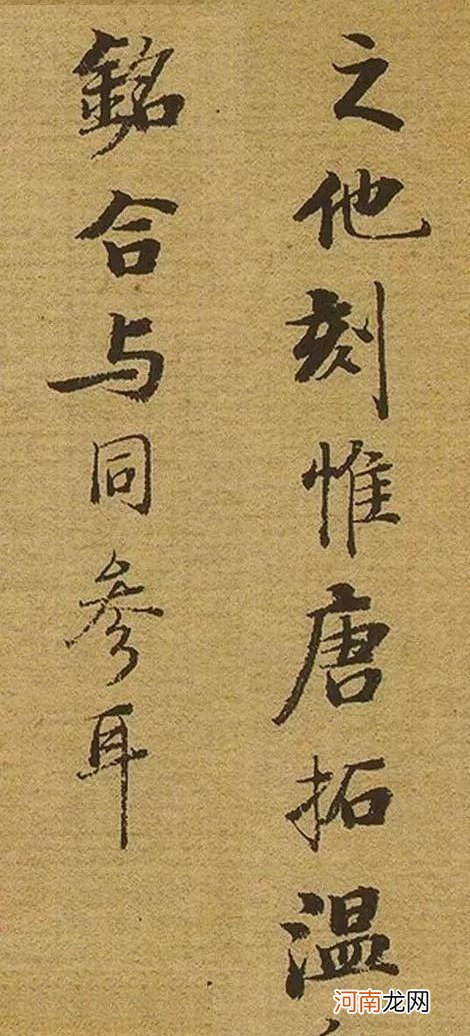 之他刻惟唐拓温
銘合与同参耳
河南龙网